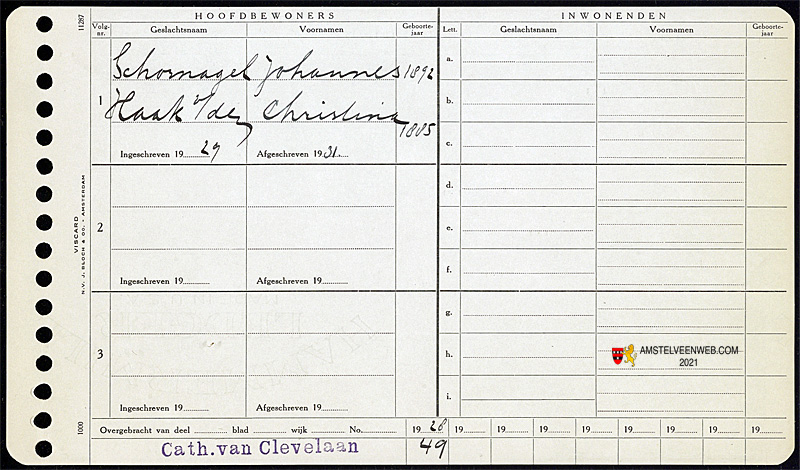 HOOFDBEWONERS
INWONENDEN
Volg-nr. Geslachtsnaam Voornamen Geboorte-jaar Lett. Geslachtsnaam Voornamen Geboorte-jaar
11287
1
Schornagel Johannes 1892
Haak v/d Christina 1885
Ingeschreven 1929 Afgeschreven 1931
2
Ingeschreven 19 Afgeschreven 19
3
Ingeschreven 19 Afgeschreven 19
a.
b.
c.
d.
e.
f.
g.
h.
i.
VISCARD
N.V. J. BLOCH & CO. • AMSTERDAM
1000
AMSTELVEENWEB.COM
2021
Overgebracht van deel blad wijk No. 1928 19 19 19 19 19 19 19 19
Cath.van Clevelaan 49